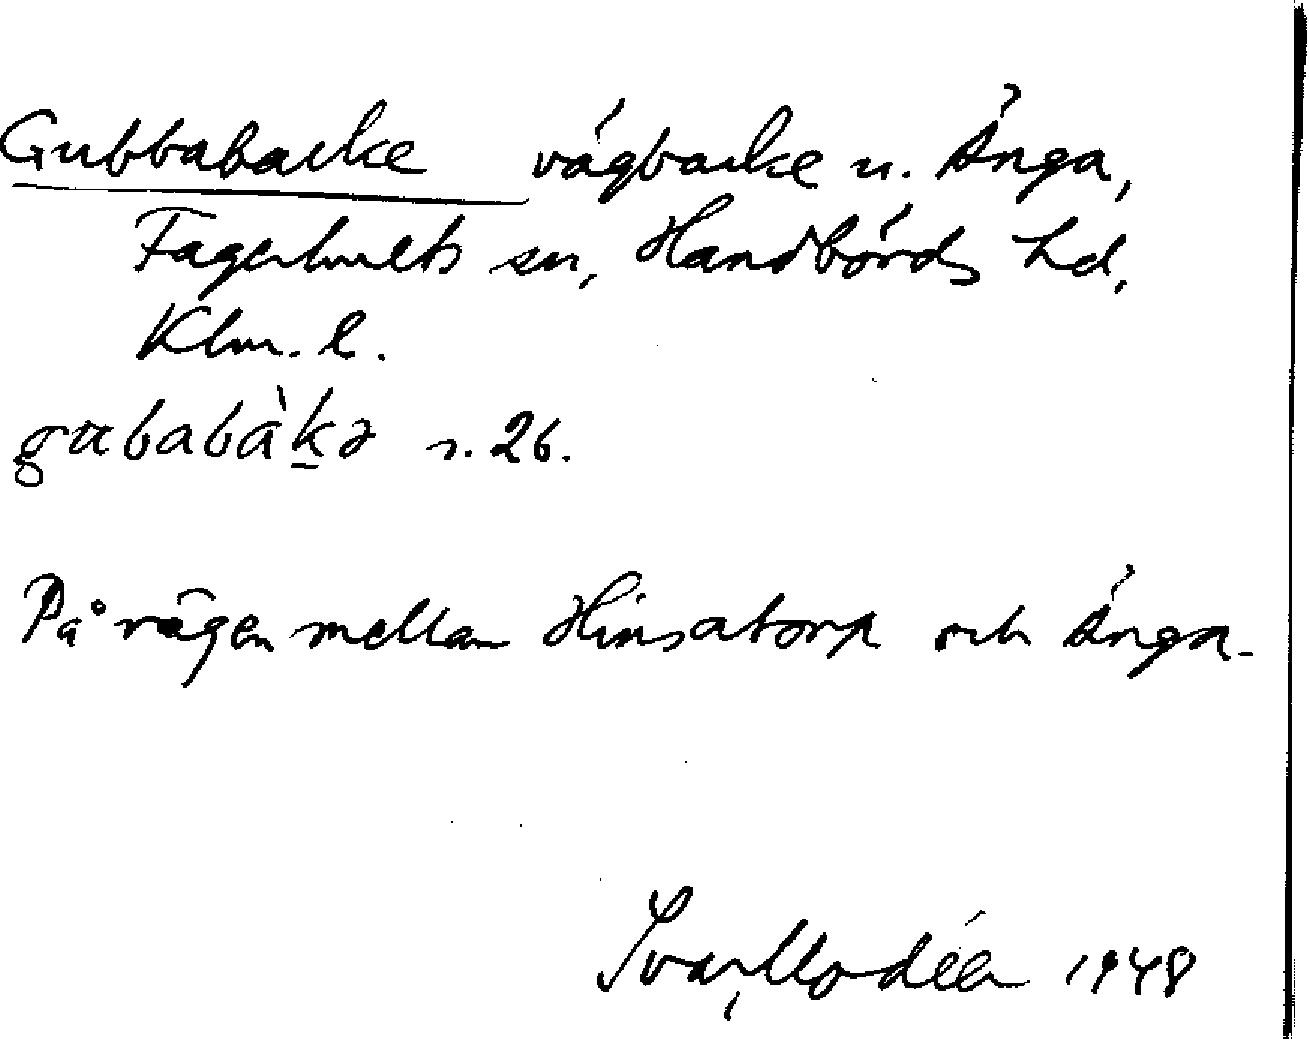 Gubbabacke vägbacke u. Änga,
Fagerhults sn, Handbörds hd,
Klm. l.
gubabàkə s. 26.
På vägen mellan Hinsatorp och Änga.
Ivar Modéer 1948